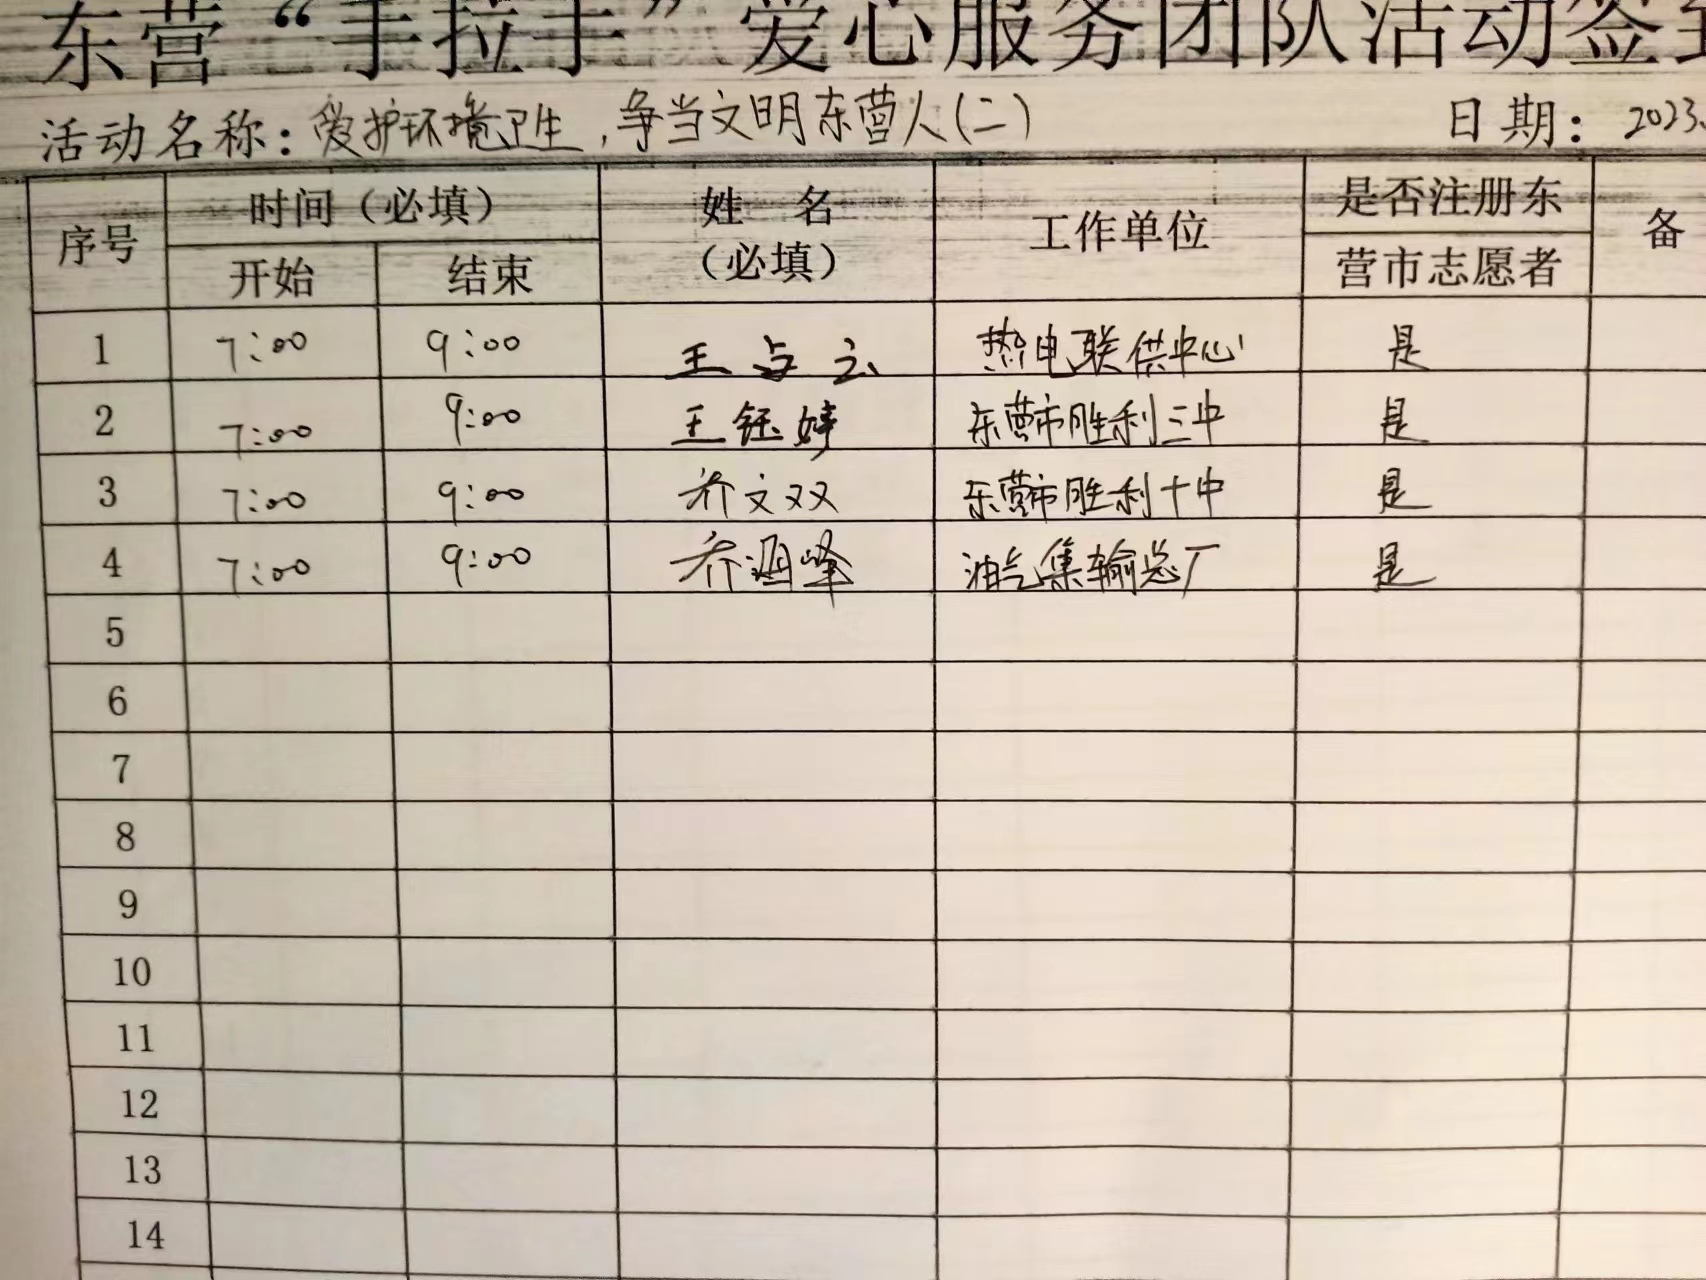 东营“手拉手”爱心服务团队活动签到
活动名称：爱护环境卫生，争当文明东营人(二) 日期：2023.
序号 时间（必填） 姓 名（必填） 工作单位 是否注册东营市志愿者 备
开始 结束
1 7:00 9:00 王占云 热电联供中心 是
2 7:00 9:00 王钰婷 东营市胜利三中 是
3 7:00 9:00 乔文双 东营市胜利十中 是
4 7:00 9:00 乔 峰 油气集输总厂 是
5
6
7
8
9
10
11
12
13
14